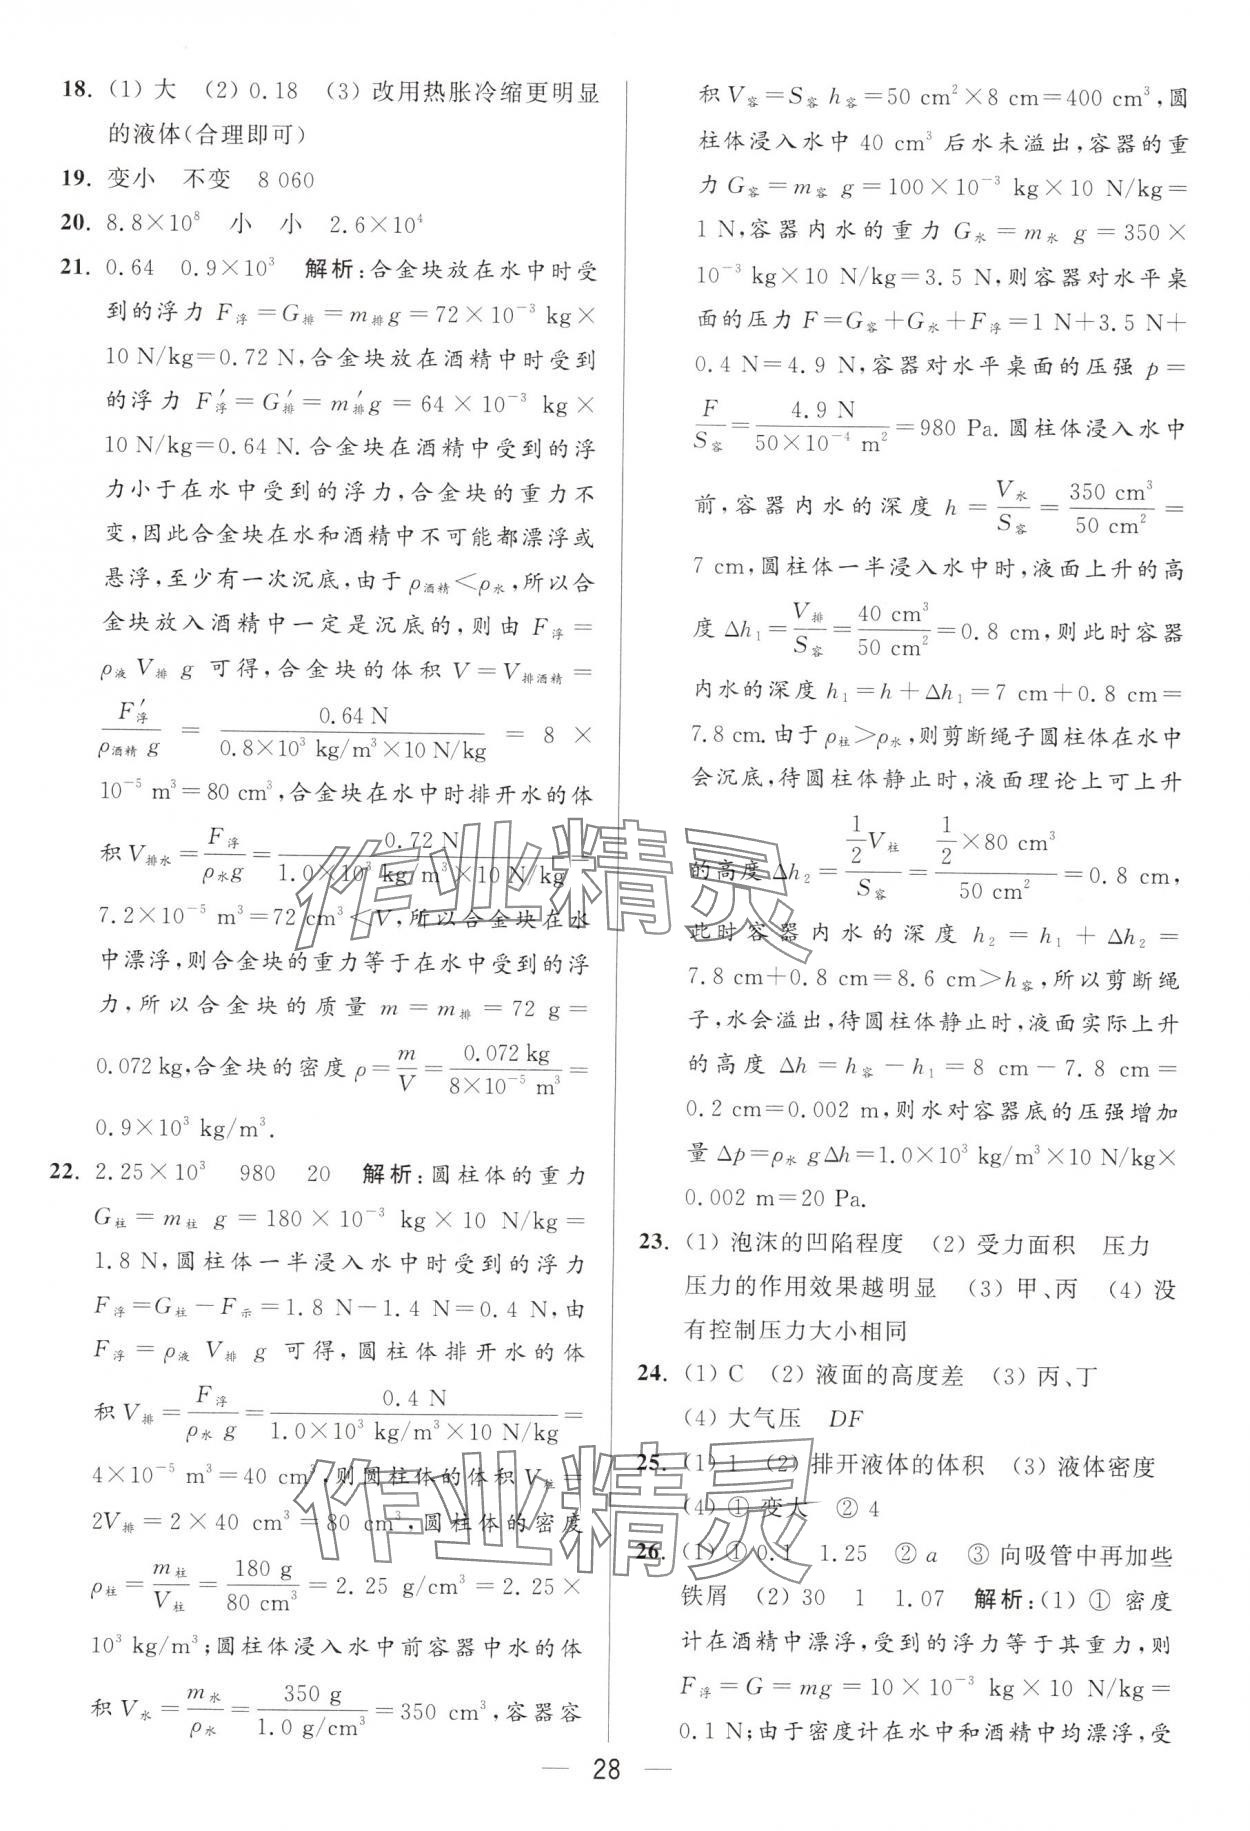 18. (1) 大 (2) 0.18 (3) 改用热胀冷缩更明显
的液体(合理即可)
19. 变小 不变 8 060
20. 8.8×10⁸ 小 小 2.6×10⁴
21. 0.64 0.9×10³ 解析:合金块放在水中时受
到的浮力 F浮=G排=m排g=72×10⁻³ kg×
10 N/kg=0.72 N,合金块放在酒精中时受到
的浮力 F′浮=G′排=m′排g=64×10⁻³ kg×
10 N/kg=0.64 N.合金块在酒精中受到的浮
力小于在水中受到的浮力,合金块的重力不
变,因此合金块在水和酒精中不可能都漂浮或
悬浮,至少有一次沉底,由于 ρ酒精<ρ水,所以合
金块放入酒精中一定是沉底的,则由 F浮=
ρ液 V排 g 可得,合金块的体积 V=V排酒精=
F′浮/(ρ酒精 g) = 0.64 N/(0.8×10³ kg/m³×10 N/kg) = 8×
10⁻⁵ m³=80 cm³,合金块在水中时排开水的体
积 V排水=F浮/(ρ水g)=0.72 N/(1.0×10³ kg/m³×10 N/kg)=
7.2×10⁻⁵ m³=72 cm³<V,所以合金块在水
中漂浮,则合金块的重力等于在水中受到的浮
力,所以合金块的质量 m=m排=72 g=
0.072 kg,合金块的密度 ρ=m/V=0.072 kg/(8×10⁻⁵ m³)=
0.9×10³ kg/m³.
22. 2.25×10³ 980 20 解析:圆柱体的重力
G柱=m柱 g=180×10⁻³ kg×10 N/kg=
1.8 N,圆柱体一半浸入水中时受到的浮力
F浮=G柱-F示=1.8 N-1.4 N=0.4 N,由
F浮=ρ液 V排 g 可得,圆柱体排开水的体
积 V排=F浮/(ρ水 g)=0.4 N/(1.0×10³ kg/m³×10 N/kg)=
4×10⁻⁵ m³=40 cm³,则圆柱体的体积 V柱=
2V排=2×40 cm³=80 cm³,圆柱体的密度
ρ柱=m柱/V柱=180 g/80 cm³=2.25 g/cm³=2.25×
10³ kg/m³;圆柱体浸入水中前容器中水的体
积 V水=m水/ρ水=350 g/(1.0 g/cm³)=350 cm³,容器容
积 V容=S容 h容=50 cm²×8 cm=400 cm³,圆
柱体浸入水中 40 cm³ 后水未溢出,容器的重
力 G容=m容 g=100×10⁻³ kg×10 N/kg=
1 N,容器内水的重力 G水=m水 g=350×
10⁻³ kg×10 N/kg=3.5 N,则容器对水平桌
面的压力 F=G容+G水+F浮=1 N+3.5 N+
0.4 N=4.9 N,容器对水平桌面的压强 p=
F/S容=4.9 N/(50×10⁻⁴ m²)=980 Pa.圆柱体浸入水中
前,容器内水的深度 h=V水/S容=350 cm³/50 cm²=
7 cm,圆柱体一半浸入水中时,液面上升的高
度 Δh₁=V排/S容=40 cm³/50 cm²=0.8 cm,则此时容器
内水的深度 h₁=h+Δh₁=7 cm+0.8 cm=
7.8 cm.由于 ρ柱>ρ水,则剪断绳子圆柱体在水中
会沉底,待圆柱体静止时,液面理论上可上升
的高度 Δh₂=(1/2 V柱)/S容=(1/2×80 cm³)/50 cm²=0.8 cm,
此时容器内水的深度 h₂=h₁+Δh₂=
7.8 cm+0.8 cm=8.6 cm>h容,所以剪断绳
子,水会溢出,待圆柱体静止时,液面实际上升
的高度 Δh=h容-h₁=8 cm-7.8 cm=
0.2 cm=0.002 m,则水对容器底的压强增加
量 Δp=ρ水 gΔh=1.0×10³ kg/m³×10 N/kg×
0.002 m=20 Pa.
23. (1) 泡沫的凹陷程度 (2) 受力面积 压力
压力的作用效果越明显 (3) 甲、丙 (4) 没
有控制压力大小相同
24. (1) C (2) 液面的高度差 (3) 丙、丁
(4) 大气压 DF
25. (1) 1 (2) 排开液体的体积 (3) 液体密度
(4) ① 变大 ② 4
26. (1) ① 0.1 1.25 ② a ③ 向吸管中再加些
铁屑 (2) 30 1 1.07 解析:(1) ① 密度
计在酒精中漂浮,受到的浮力等于其重力,则
F浮=G=mg=10×10⁻³ kg×10 N/kg=
0.1 N;由于密度计在水中和酒精中均漂浮,受
28
作业精灵
作业精灵